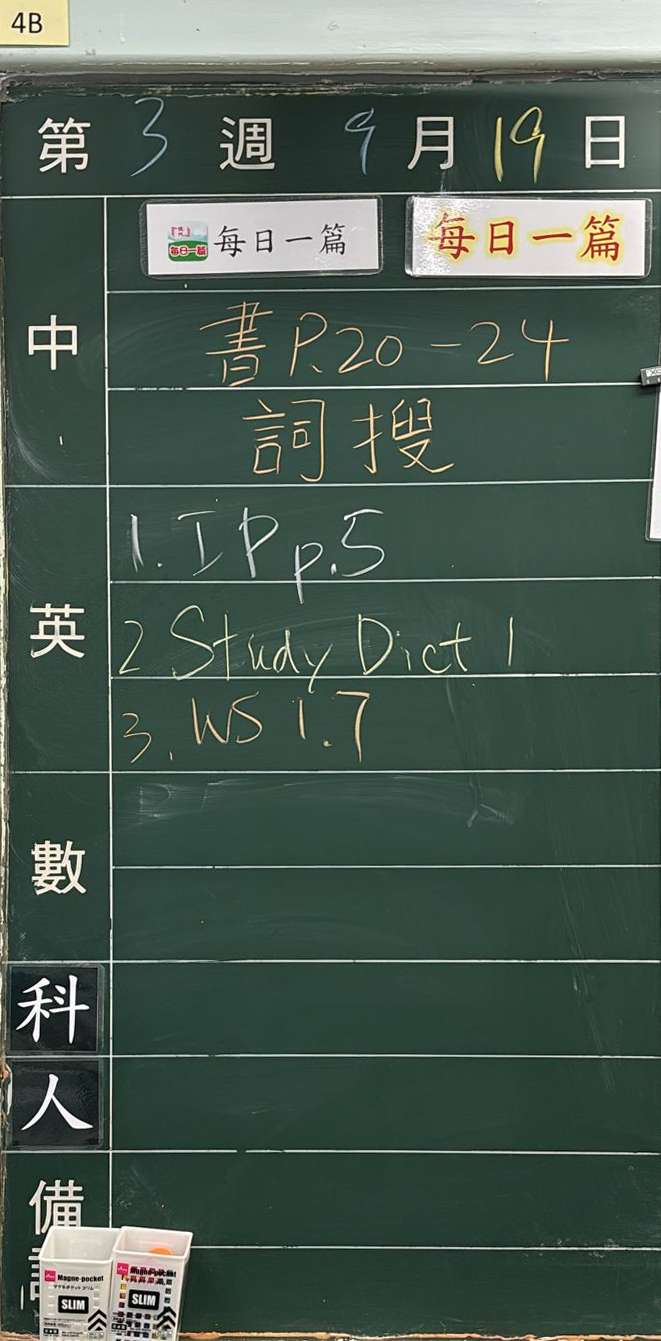 4B
第 3 週 9 月 19 日
每日一篇 每日一篇
每日一篇
中
書 P.20-24
詞 搜
英
1. IP p.5
2 Study Dict 1
3. WS 1.7
數
科
人
備
Magne-pocket Magne-pocket
SLIM SLIM